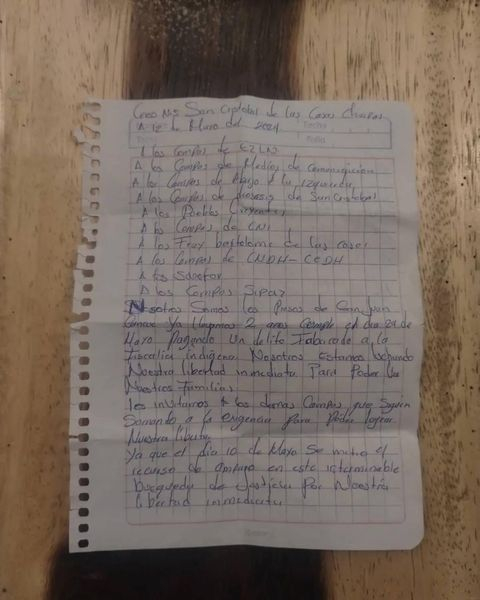 Cereso N:5 San Cristobal de las Casas Chiapas
A 12 de Mayo del 2024
Fecha
Folio
A los Compas de EZLN
A los Compas de Medios de Comunicación
A los Compas de Abajo A la izquierda
A los Compas de diosesis de San Cristobal
A los Pueblos Creyentes
A los Compas de CNI
A los Fray bartolome de las casas
A los Compas de CNDH-CEDH
A los
A los Compas Sipaz
Nosotros Somos los Presos de San Juan
Cancuc Ya llevamos 2 años Cumple el dia 29 de
Mayo Pagando Un delito Fabricado a la
Fiscalia indigena Nosotros Estamos
Nuestra libertad inmediata Para Poder
Nuestras Familias
les invitamos A los demas Compas que Siguen
Sumando a la exigencia para Poder lograr
Nuestra libertad
Ya que el dia 10 de Mayo Se metio el
recurso de amparo en esta interminable
busqueda de Justicia Por Nuestra
libertad inmediata